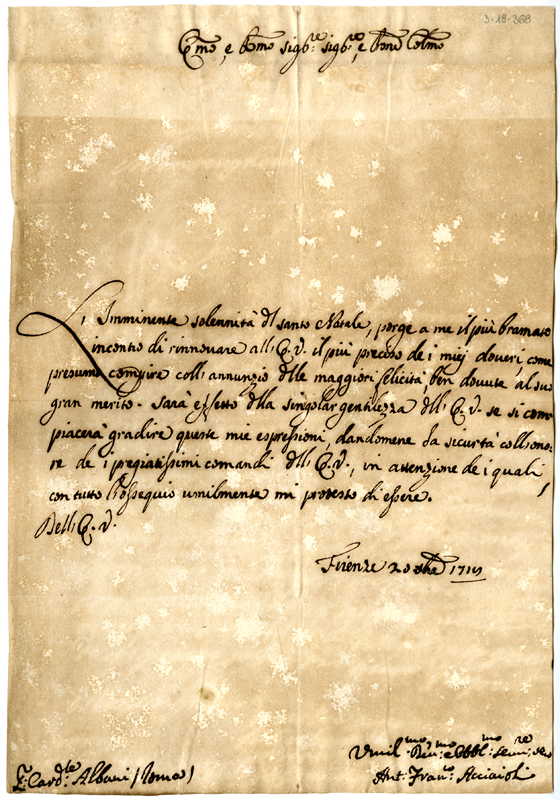 3-18-368
Em̃o, e R̃mo Sigr. Sigr., e Prõne Colmo
L'Imminente solennità dl santo Natale, porge a me il più bramato
incontro di rinnovare all'E. V. il più preciso de i miej doueri, come
presumo compire coll'annunzio delle maggiori felicità ben dovute al suo
gran merito. Sarà effetto dlla singolar gentilezza dll'E. V. se si com
piacerà gradire queste mie espressioni, dandomene la sicurtà coll'ono-
re de i pregiatissimi comandi dll'E. V., in attenzione de i quali,
con tutto l'ossequio umilmente mi protesto di essere.
Dell'E. V.
Firenze 20
Umil.mo Deu.mo e Obbl.mo Seru.re
Card.le Albani (Roma)
Ant. Fran.co Acciaioli